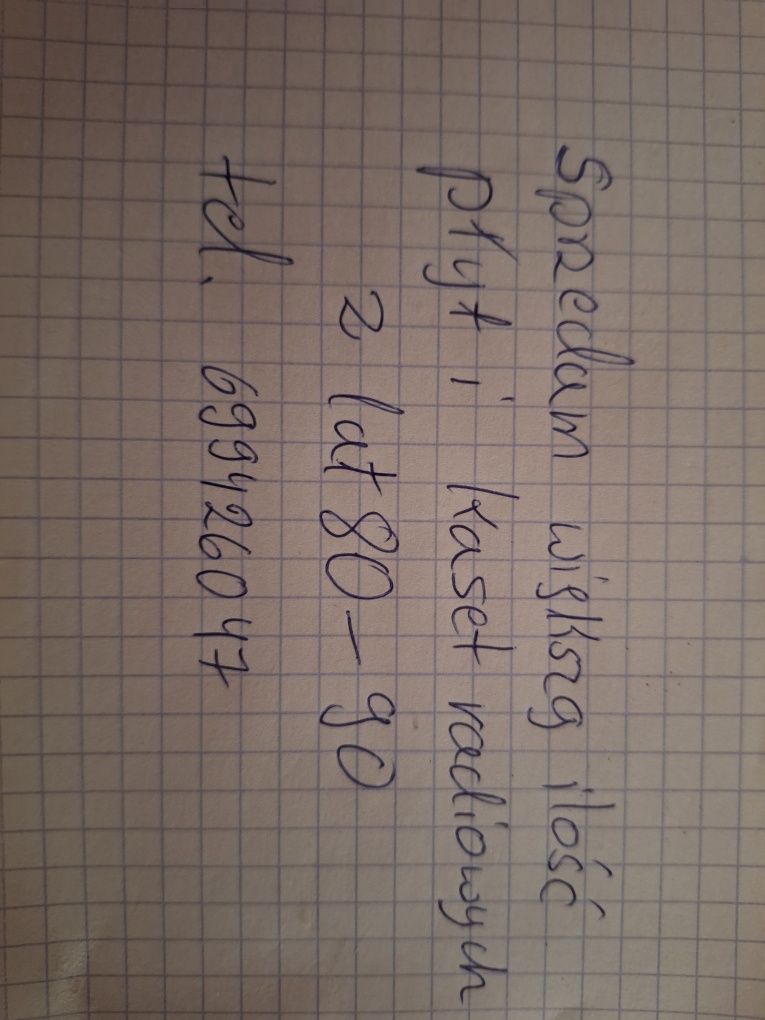 Sprzedam większą ilość
płyt i kaset radiowych
z lat 80-90
tel. 699426047